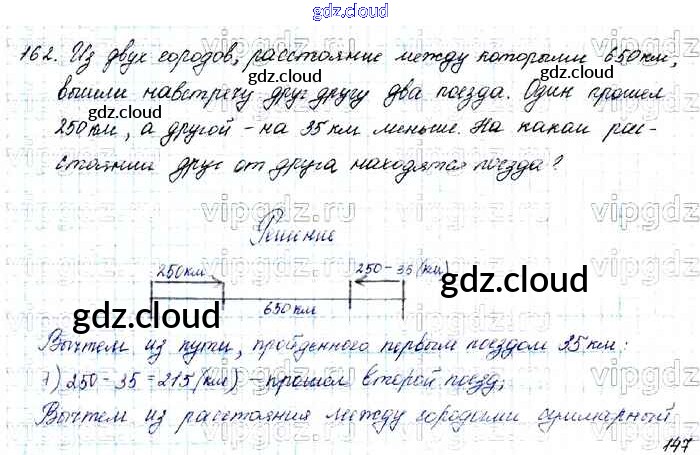 gdz.cloud
162. Из двух городов, расстояние между которыми 650км,
gdz.cloud gdz.cloud
вышли навстречу друг другу два поезда. Один прошел
gdz.cloud gdz.cloud
250км, а другой - на 35 км меньше. На каком рас-
стоянии друг от друга находятся поезда?
vipgdz.ru vipgdz.ru
Решение
250км 250-35(км)
gdz.cloud
650км
gdz.cloud gdz.cloud
Вычтем из пути, пройденного первым поездом 35км:
1) 250-35=215(км) - прошел второй поезд;
Вычтем из расстояния между городами суммарный
147